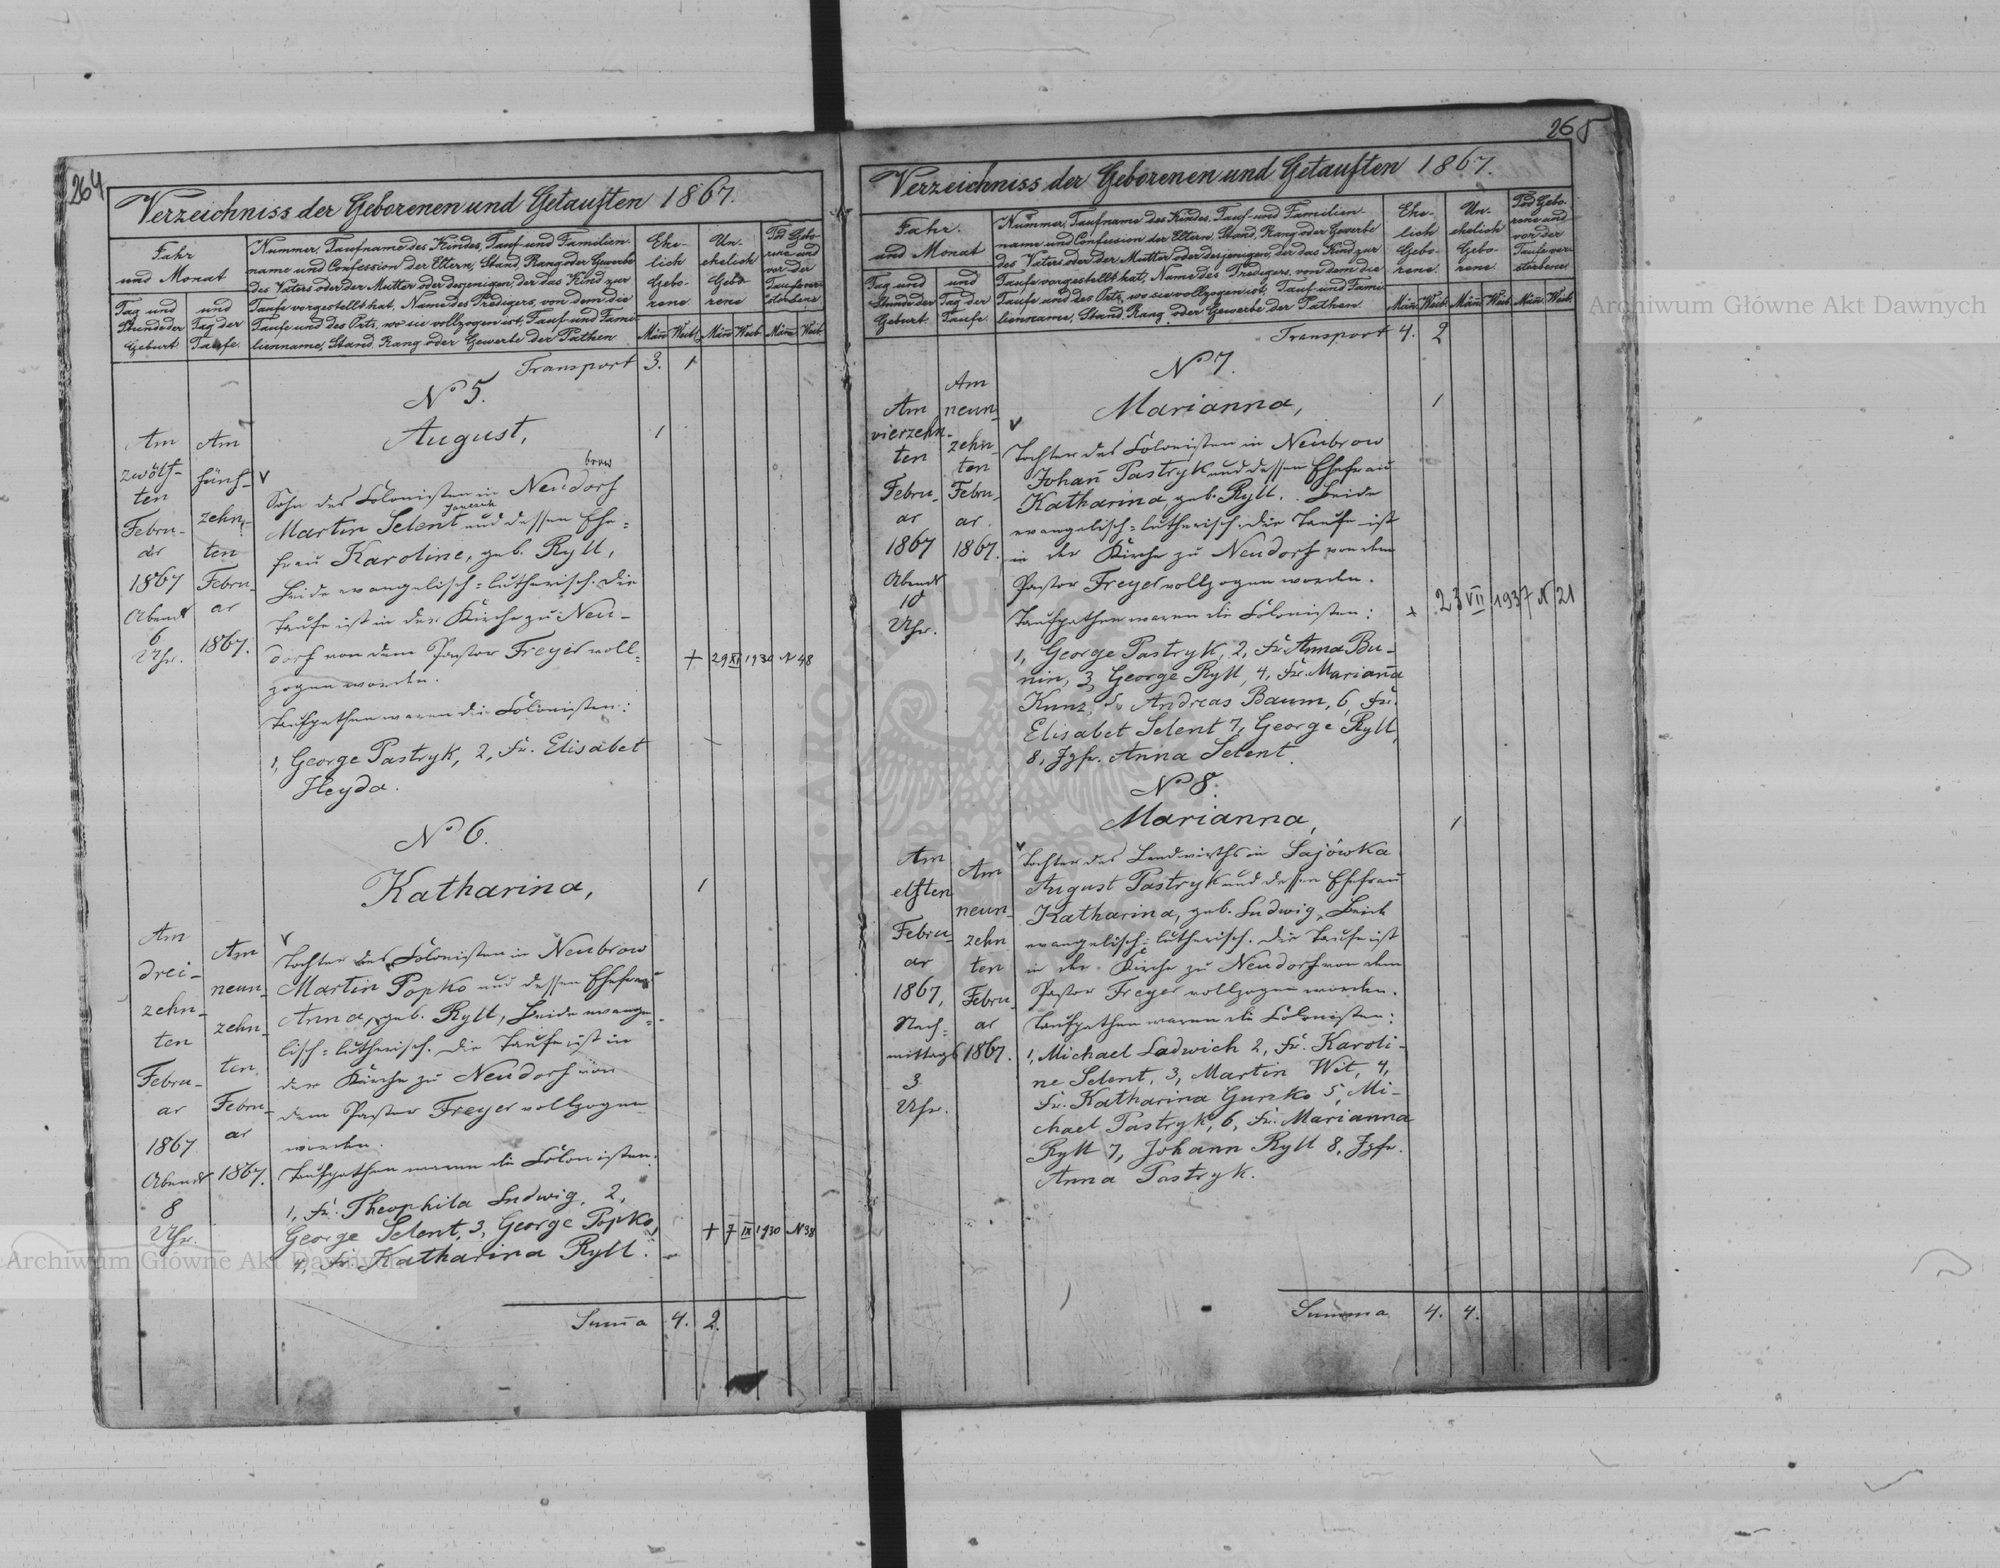 264
Verzeichniss der Geborenen und Getauften 1867.
Jahr
und Monat
Tag und
Stunde der
Geburt.
und
Tag der
Taufe.
Nummer, Taufname des Kindes, Tauf- und Familien-
name und Confession der Eltern, Stand, Rang oder Gewerbe
des Vaters oder der Mutter oder desjenigen, der das Kind zur
Taufe vorgestellt hat, Name des Predigers, von dem die
Taufe und des Orts, wo sie vollzogen ist, Tauf- und Fami-
lienname, Stand, Rang oder Gewerbe der Pathen
Ehe-
lich
Gebo-
rene
Un-
ehelich
Gebo-
rene
Tod Gebo-
rene und
vor der
Taufe ver-
storbene
Män. Weib. Män. Weib. Män. Weib.
Transport 3. 1
No 5.
August, 1
Am
zwölf-
ten
Febru-
ar
1867
Abends
6
Uhr.
Am
fünf-
zehn-
ten
Febru-
ar
1867.
brow
Sohn des Colonisten in Neudorf
Martin Selent und dessen Ehe-
frau Karoline, geb. Ryll,
Beide evangelisch-lutherisch. Die
Taufe ist in der Kirche zu Neu-
dorf von dem Pastor Freyer voll-
zogen worden.
+ 29 XI 1930 N 48
Taufpathen waren die Colonisten:
1, George Pastryk, 2, Fr. Elisabet
Heyda.
No 6.
Katharina, 1
Am
drei-
zehn-
ten
Febru-
ar
1867
Abends
8
Uhr.
Am
neun-
zehn-
ten
Febru-
ar
1867.
Tochter des Colonisten in Neubrow
Martin Popko und dessen Ehefrau
Anna, geb. Ryll, Beide evange-
lisch-lutherisch. Die Taufe ist in
der Kirche zu Neudorf von
dem Pastor Freyer vollzogen
worden.
Taufpathen waren die Colonisten:
1, Fr. Theophila Ludwig, 2,
George Selent, 3, George Popko,
4, Fr. Katharina Ryll.
+ 7 IX 1930 N 38
Summa 4. 2.
265
Verzeichniss der Geborenen und Getauften 1867.
Jahr.
und Monat
Tag und
Stunde der
Geburt.
und
Tag der
Taufe.
Nummer, Taufname des Kindes, Tauf- und Familien-
name und Confession der Eltern, Stand, Rang oder Gewerbe
des Vaters oder der Mutter oder desjenigen, der das Kind zur
Taufe vorgestellt hat, Name des Predigers, von dem die
Taufe und des Orts, wo sie vollzogen ist, Tauf- und Fami-
lienname, Stand, Rang oder Gewerbe der Pathen.
Ehe-
lich
Gebo-
rene.
Un-
ehelich
Gebo-
rene.
Tod Gebo-
rene und
vor der
Taufe ver-
storbene.
Män. Weib. Män. Weib. Män. Weib.
Transport 4. 2
No 7.
Marianna, 1
Am
vierzehn-
ten
Febru-
ar
1867
Abends
10
Uhr.
Am
neun-
zehn-
ten
Febru-
ar.
1867.
Tochter des Colonisten in Neubrow
Johan̄ Pastryk und dessen Ehefrau
Katharina geb. Ryll. Beide
evangelisch-lutherisch. Die Taufe ist
in der Kirche zu Neudorf von dem
Pastor Freyer vollzogen worden.
Taufpathen waren die Colonisten:
+ 23 VII 1937 N 21
1, George Pastryk, 2, Fr. Anna Bu-
nin, 3, George Ryll, 4, Fr. Marian̄a
Kunz, 5, Andreas Baum, 6, Fr.
Elisabet Selent 7, George Ryll,
8, Jgfr. Anna Selent.
No 8.
Marianna, 1
Am
elften
Febru-
ar
1867,
Nach-
mittags
3
Uhr.
Am
neun-
zehn
ten
Febru-
ar
1867.
Tochter des Landwirths in Sajówka
August Pastryk und dessen Ehefrau
Katharina, geb. Ludwig, Beide
evangelisch-lutherisch. Die Taufe ist
in der Kirche zu Neudorf von dem
Pastor Freyer vollzogen worden.
Taufpathen waren die Colonisten:
1, Michael Ladwich 2, Fr. Karoli-
ne Selent, 3, Martin Wit, 4,
Fr. Katharina Gunko 5, Mi-
chael Pastryk, 6, Fr. Marianna
Ryll 7, Johann Ryll 8, Jgfr.
Anna Pastryk.
Summa 4. 4.
Archiwum Główne Akt Dawnych
Archiwum Główne Akt Dawnych